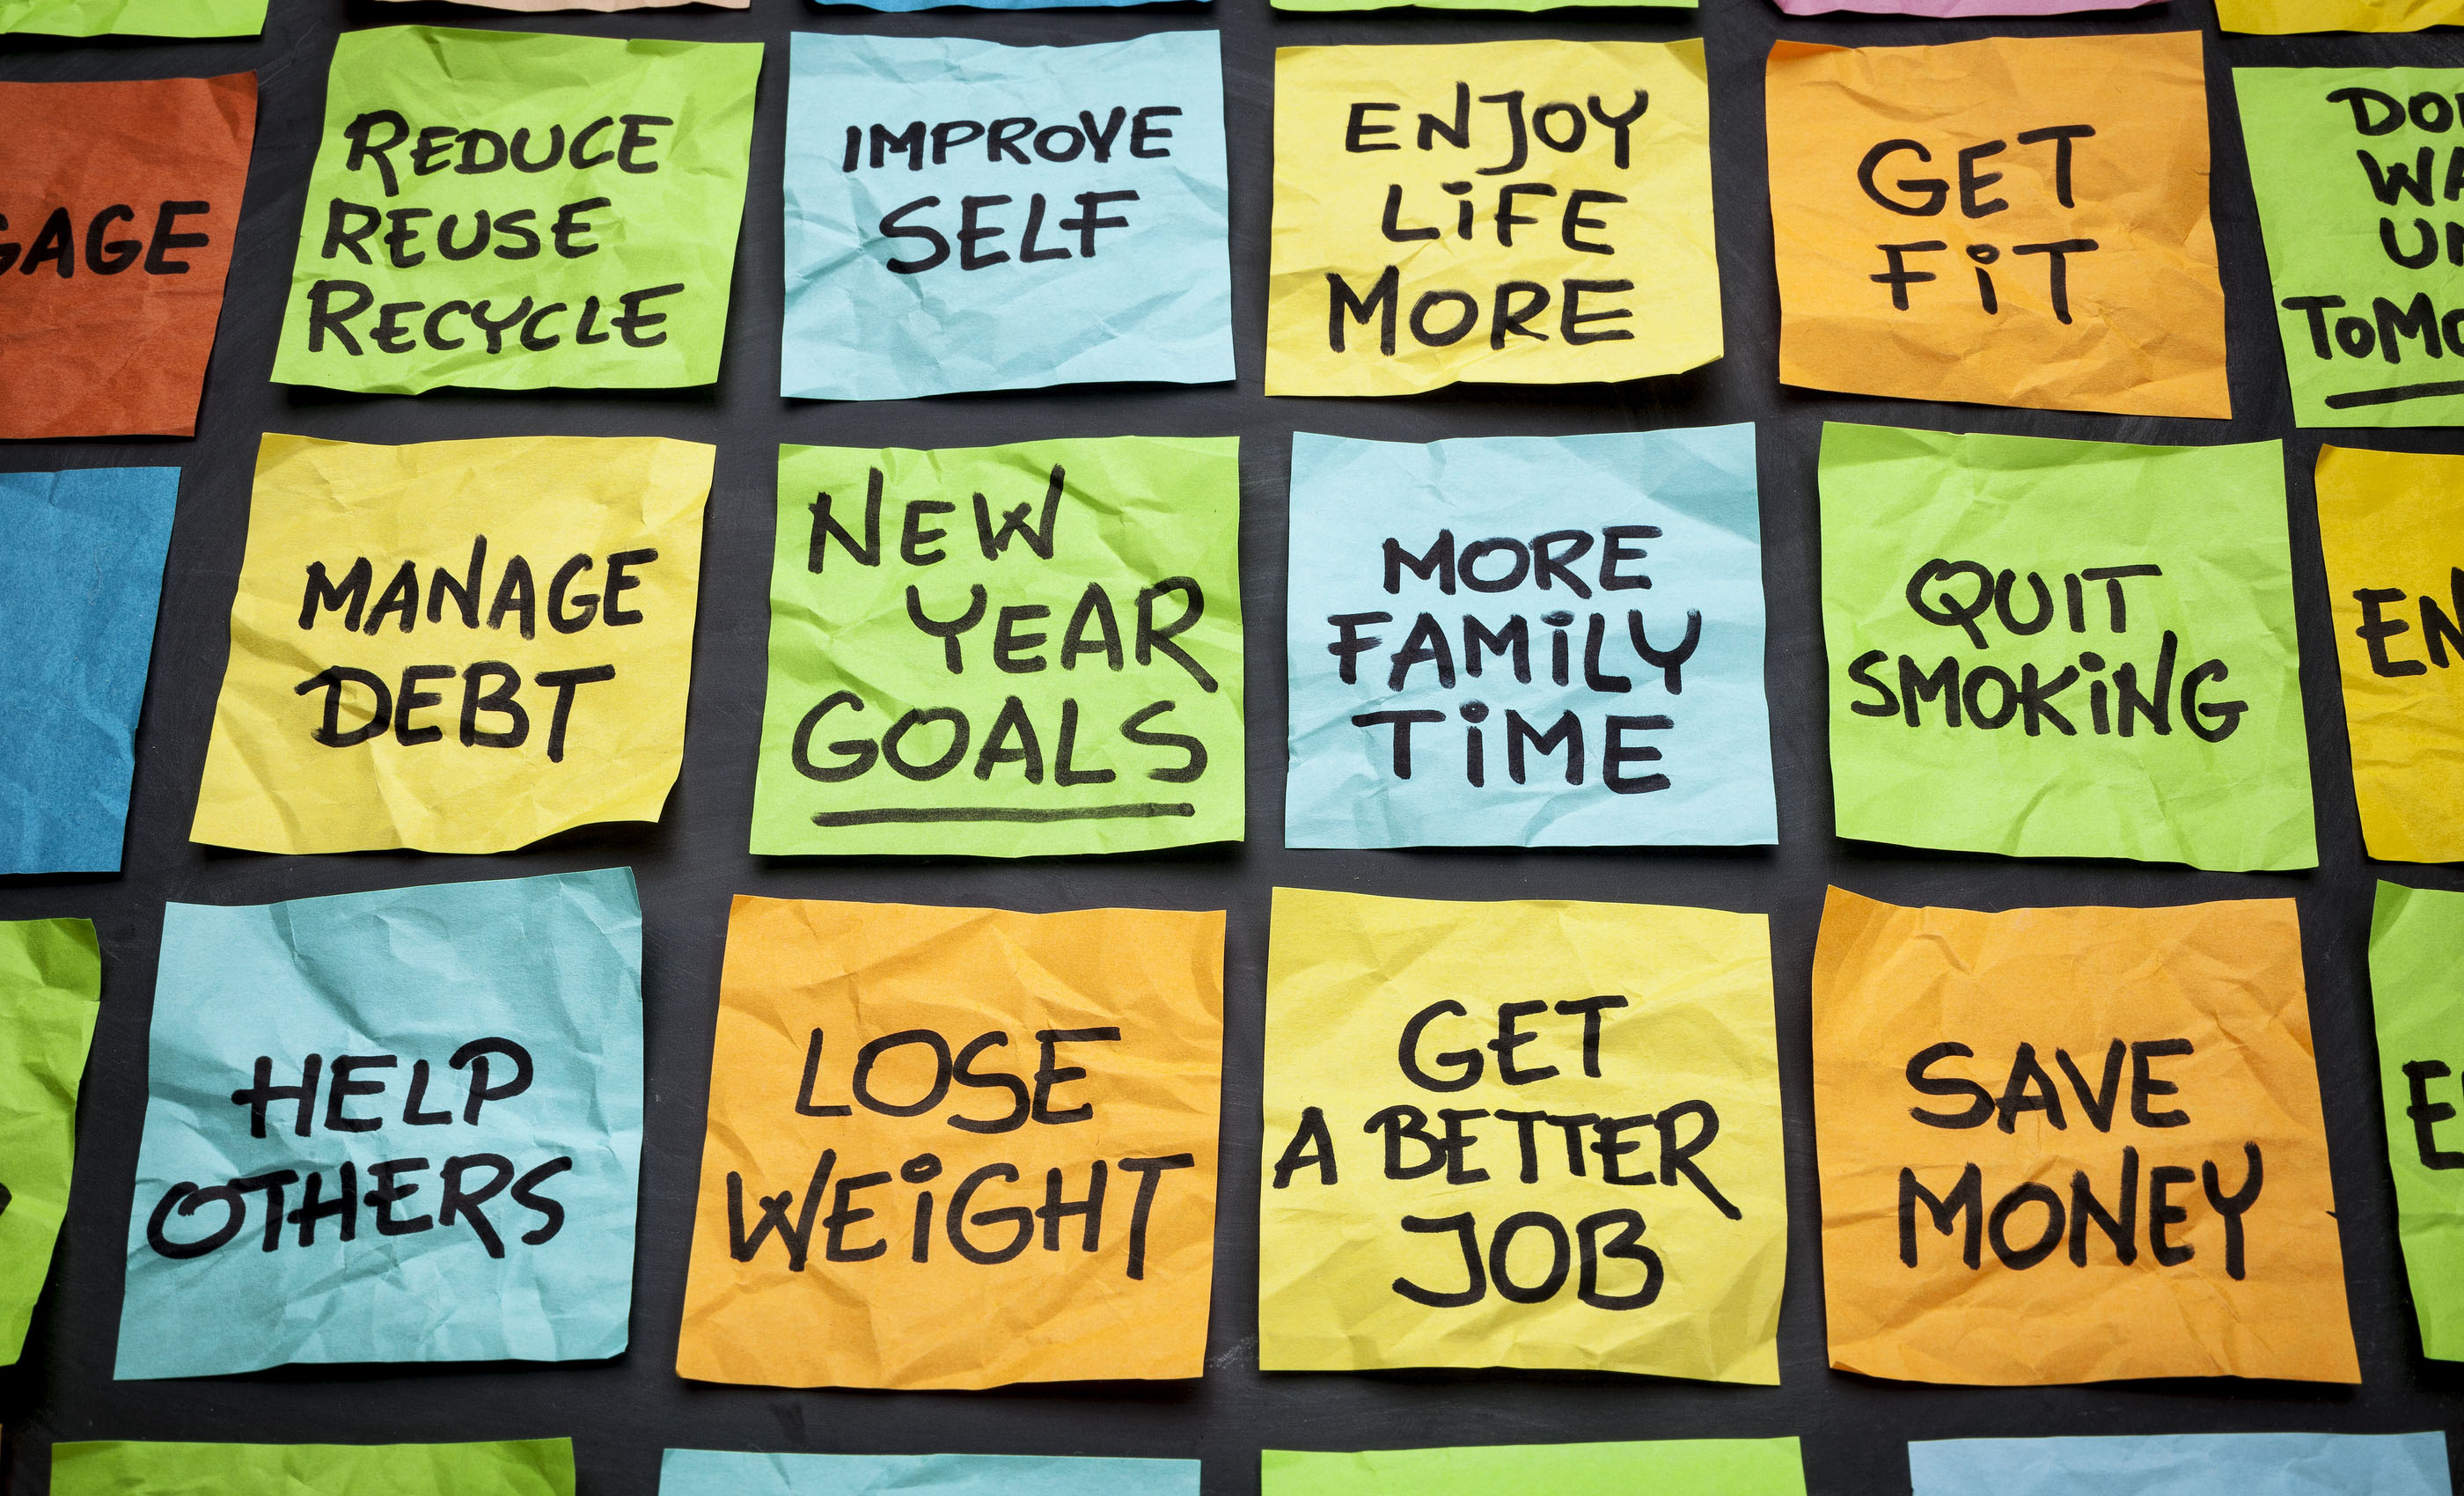 REDUCE
REUSE
RECYCLE
IMPROVE
SELF
ENJOY
LIFE
MORE
GET
FIT
MANAGE
DEBT
NEW
YEAR
GOALS
MORE
FAMILY
TIME
QUIT
SMOKING
HELP
OTHERS
LOSE
WEIGHT
GET
A BETTER
JOB
SAVE
MONEY